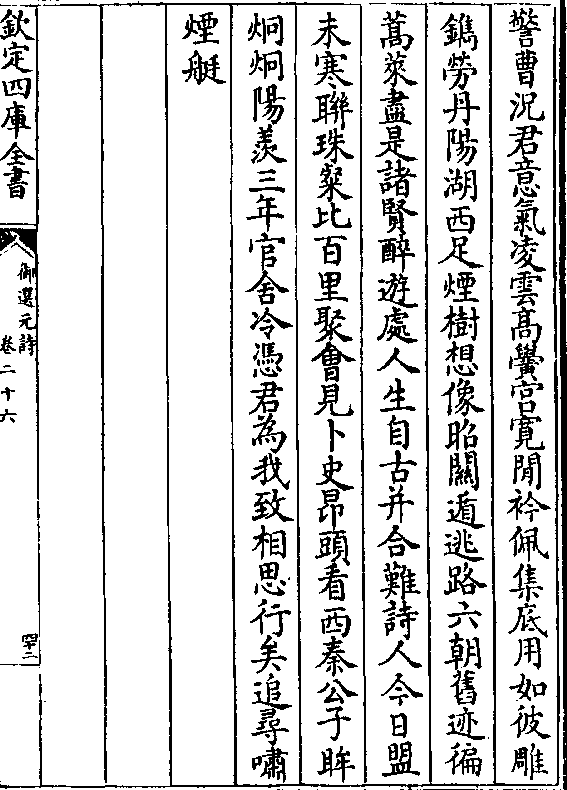 警曹況君意氣凌雲髙黌宫寛閒衿佩集底用如彼雕
鐫勞丹陽湖西足煙樹想像昭關遁逃路六朝舊迹徧
蒿萊盡是諸賢醉遊處人生自古并合難詩人今日盟
未寒聯珠粲比百里聚會見卜史昂頭看西秦公子眸
炯炯陽羡三年官舍冷憑君為我致相思行矣追尋嘯
煙艇
欽定四庫全書
御選元詩
卷二十六
四十二